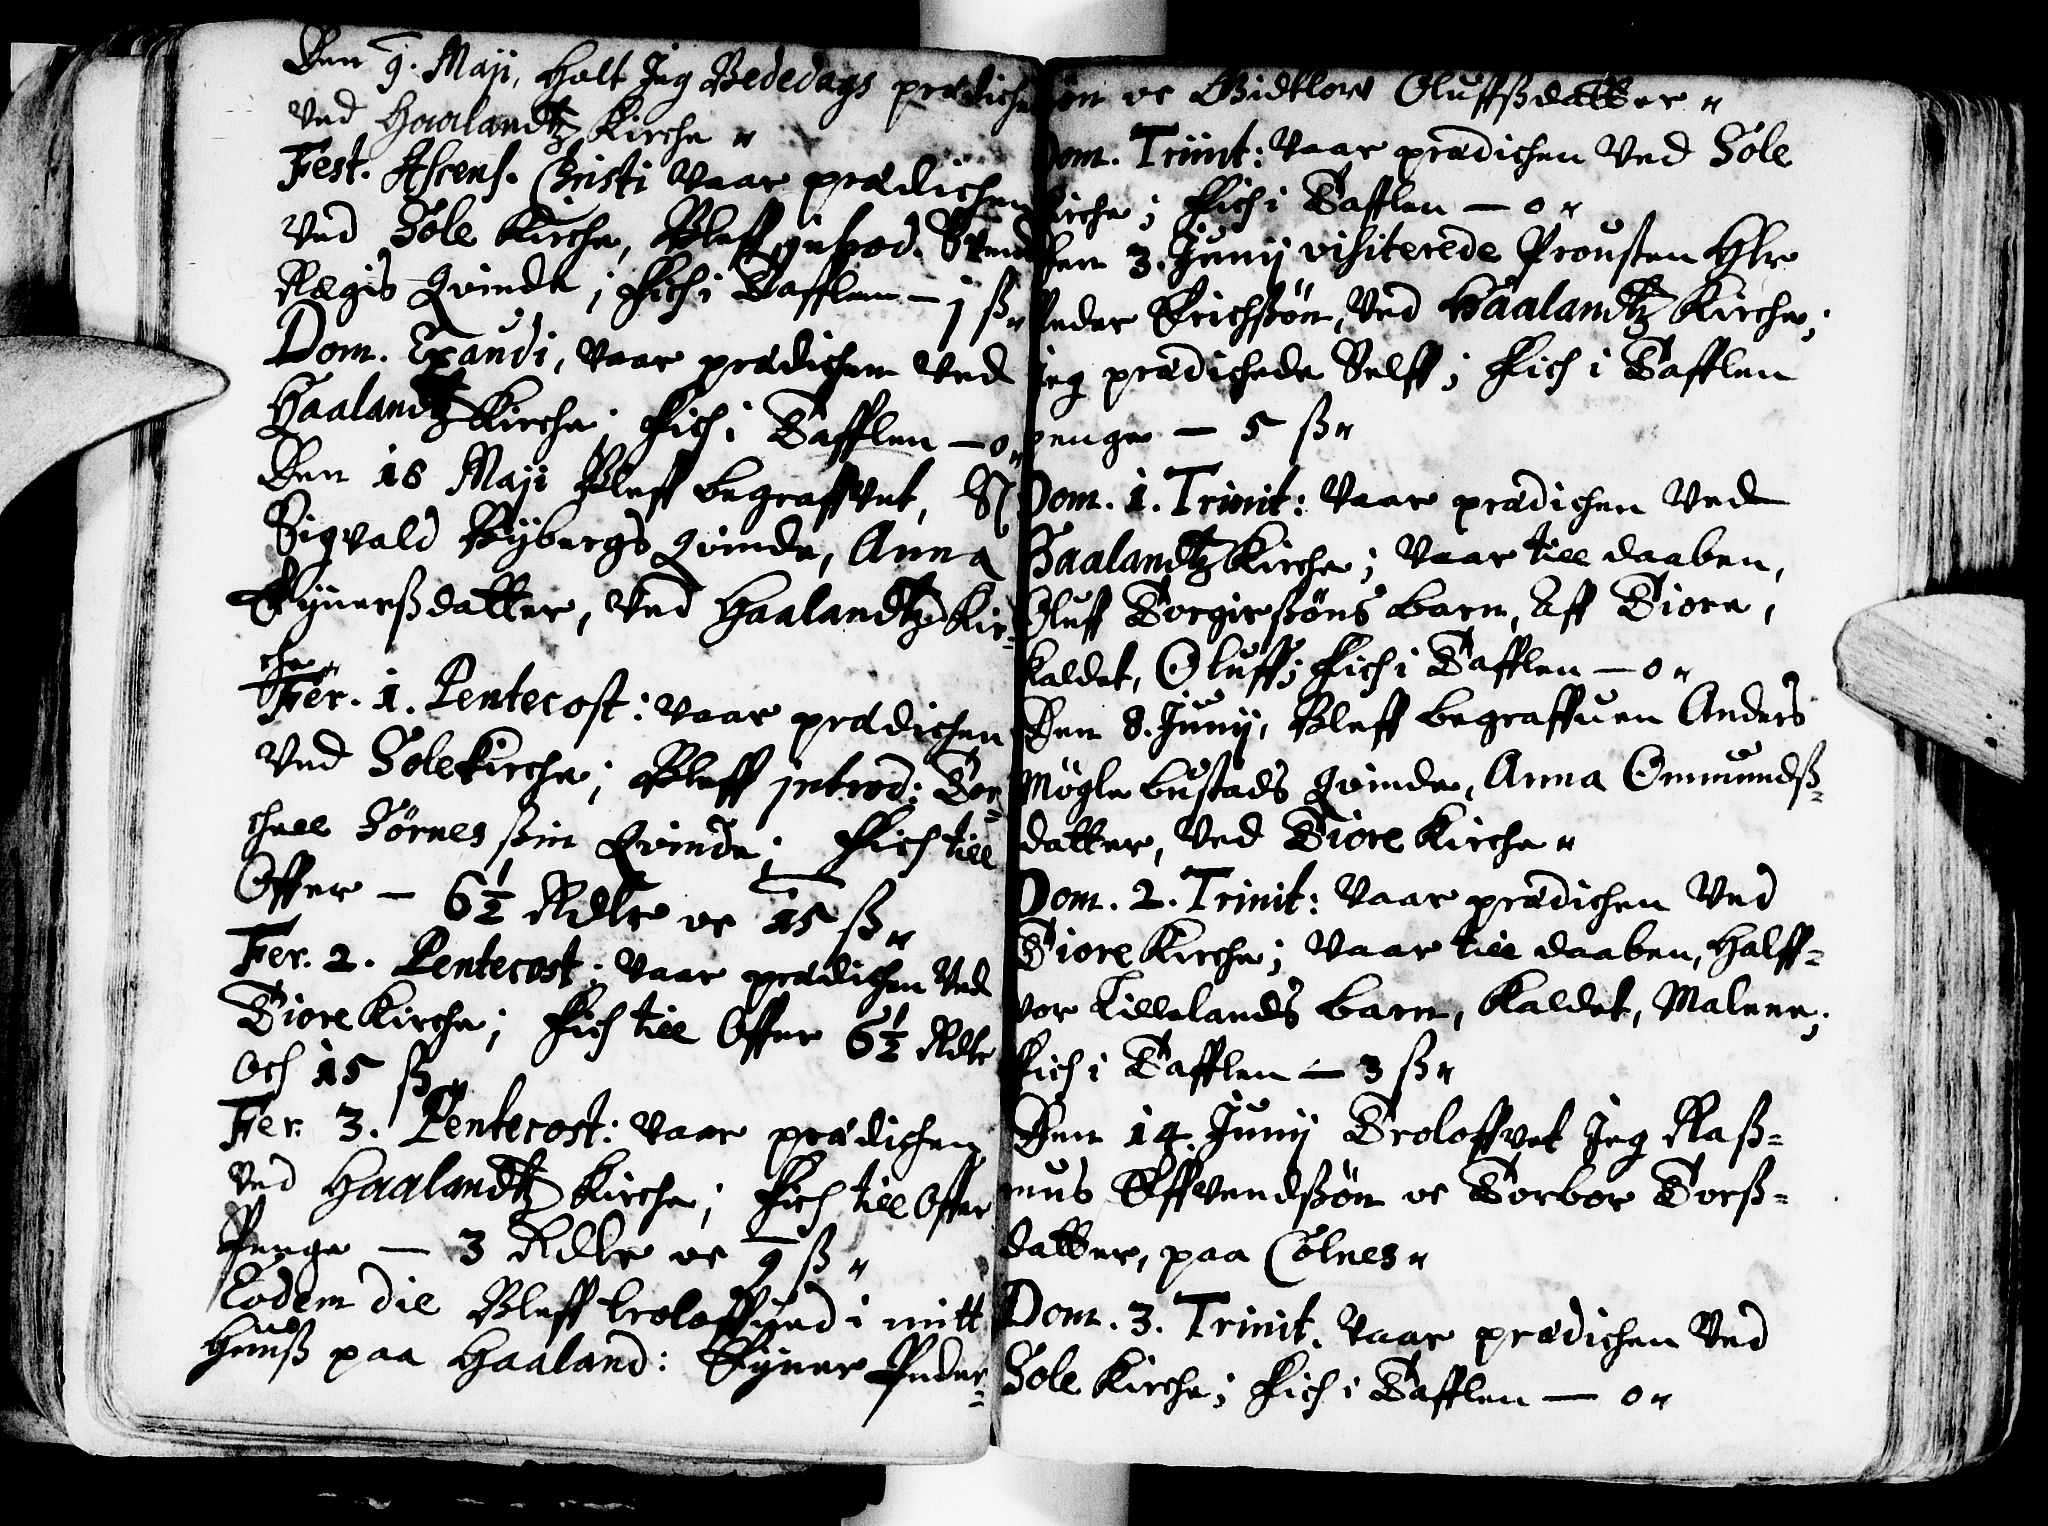 Den 9. Maji, Holt Jeg Bededags prædichen
Ved Haalandtz Kirche
Fest. Ascens. Christi Vaar prædichen
Ved Sole Kirche, Bleff introd. Svend
Rægis Qvinde; Fich i Tafflen — 1 ß
Dom. Exaudi, Vaar prædichen Ved
Haalandtz Kirche; Fich i Tafflen — 0
Den 16 Maji Bleff begraffvet, S
Sigvald Rybergs qvinde, Anna
Eynersdatter, Ved Haalandtz Kir-
che
Fer. 1. Pentecost: Vaar prædichen
Ved Sole Kirche; Bleff introd: Tor-
chell Sörnes ßin Qvinde; Fich till
Offer — 6½ Rdlr oc 15 ß
Fer. 2. Pentecost: Vaar prædichen Ved
Tiore Kirche; Fich till Offer 6½ Rdlr
Och 15 ß
Fer. 3. Pentecost: Vaar prædichen
Ved Haalandtz Kirche; Fich till Offer
Penge — 3 Rdlr oc 9 ß
Eodem die Bleff troloffved i mitt
Huuß paa Haaland: Eyner Peder-
ßøn oc Gidtlow Oluffßdatter
Dom. Triint: Vaar prædichen Ved Sole
Kirche; Fich i Tafflen — 0
Den 3. Junij visiterede Prousten Hlr
Peder Erichßön, Ved Haalandtz Kirche;
Jeg prædichede Selff; Fich i Tafflen
penge — 5 ß
Dom. 1. Trinit: Vaar prædichen Ved
Haalandtz Kirche; Vaar till daaben,
Oluff Torgirßöns barn, Aff Tiore,
kaldet, Oluff; Fich i Tafflen — 0
Den 8. Junij, Bleff begraffuen Anders
Mögle bustads Qvinde, Anna Ommundß-
datter, Ved Tiore Kirche
Dom. 2. Trinit: Vaar prædichen Ved
Tiore Kirche; Vaar till daaben, Halff-
vor Lillelands barn, kaldet, Malene;
Fich i Tafflen — 3 ß
Den 14 Junij Troloffvet Jeg Raß-
mus Effvendßön oc Torbor Torß-
datter, paa Cölnes
Dom. 3. Trinit. Vaar prædichen Ved
Sole Kirche; Fich i Tafflen — 0